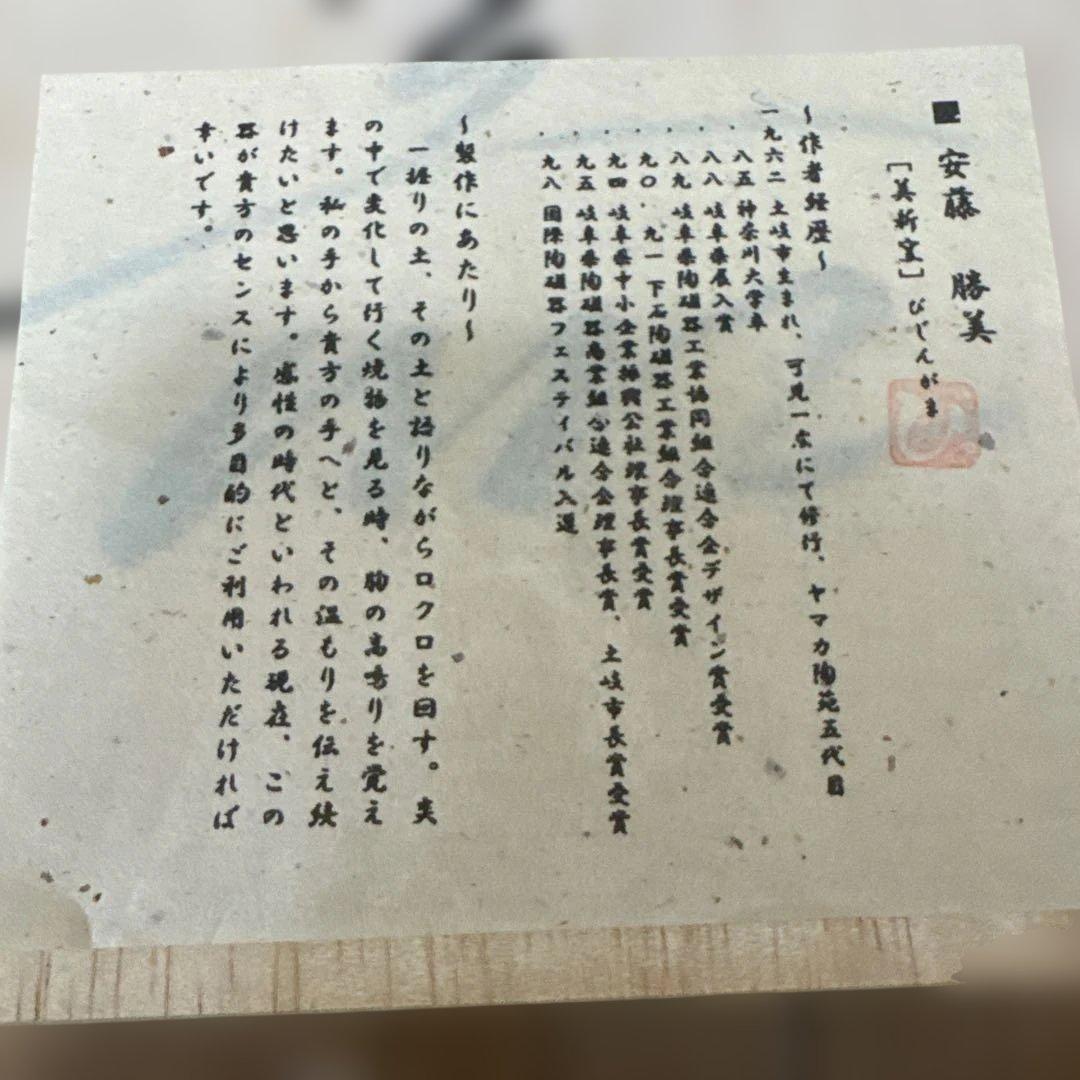 ■ 安藤 勝美
［美新窯］びしんがま
～作者経歴～
一九六二 土岐市生まれ、可児一広にて修行、ヤマカ陶苑五代目
・八五 神奈川大学卒
・八八 岐阜県展入賞
・八九 岐阜県陶磁器工業協同組合連合会デザイン賞受賞
・九〇、九一 下石陶磁器工業組合理事長賞受賞
・九四 岐阜県中小企業振興公社理事長賞受賞
・九五 岐阜県陶磁器商業組合連合会理事長賞、土岐市長賞受賞
・九八 国際陶磁器フェスティバル入選
～製作にあたり～
一握りの土、その土と語りながらロクロを回す。炎
の中で変化して行く焼物を見る時、胸の高鳴りを覚え
ます。私の手から貴方の手へと、その温もりを伝え続
けたいと思います。感性の時代といわれる現在、この
器が貴方のセンスにより多目的にご利用いただければ
幸いです。